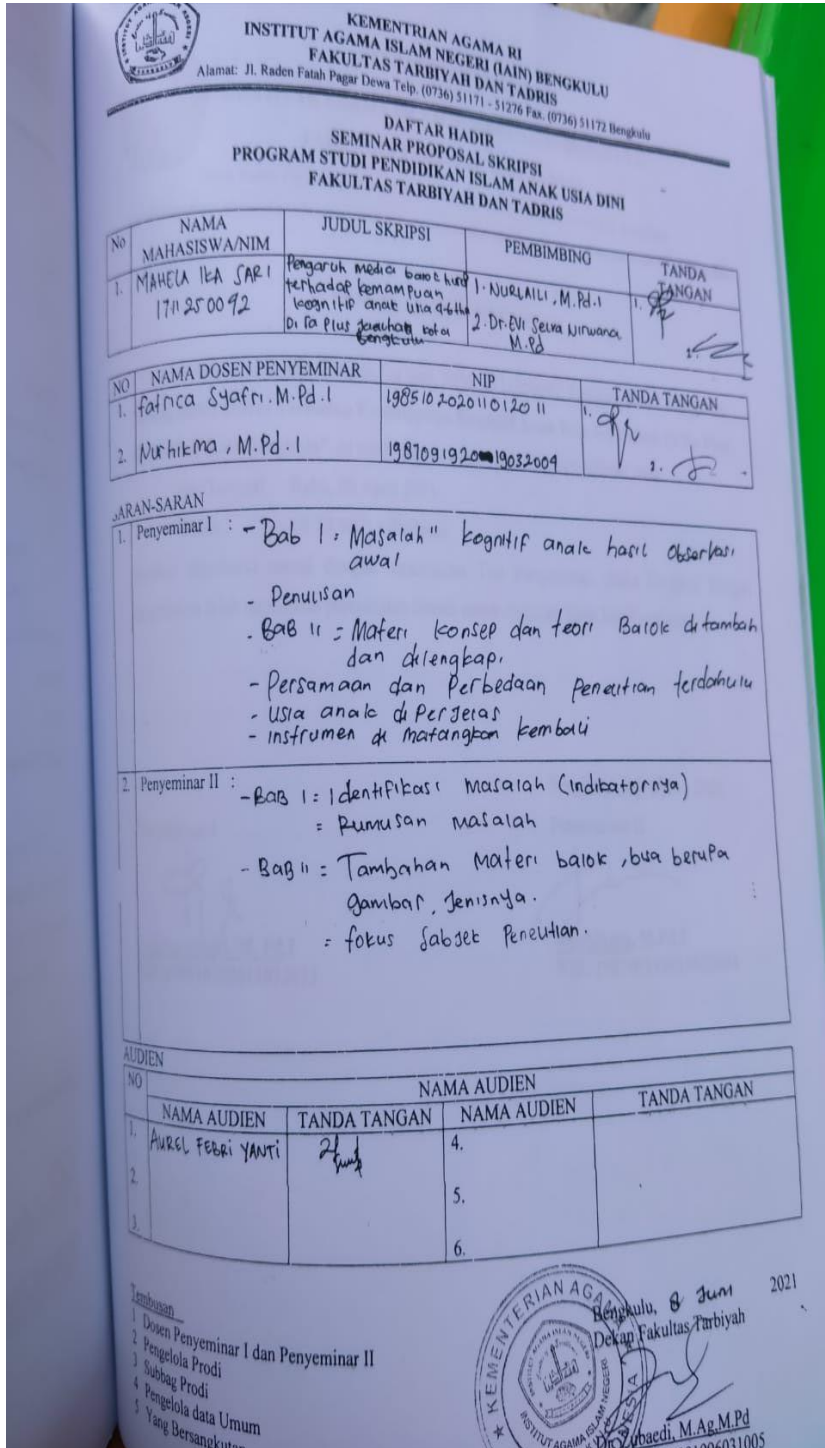 KEMENTRIAN AGAMA RI
INSTITUT AGAMA ISLAM NEGERI (IAIN) BENGKULU
FAKULTAS TARBIYAH DAN TADRIS
Alamat: Jl. Raden Fatah Pagar Dewa Telp. (0736) 51171 - 51276 Fax. (0736) 51172 Bengkulu
DAFTAR HADIR
SEMINAR PROPOSAL SKRIPSI
PROGRAM STUDI PENDIDIKAN ISLAM ANAK USIA DINI
FAKULTAS TARBIYAH DAN TADRIS
No NAMA MAHASISWA/NIM JUDUL SKRIPSI PEMBIMBING TANDA TANGAN
1. MAHELA IKA SARI
1711250092
Pengaruh media balok huruf
terhadap kemampuan
kognitif anak usia
Di Plus kota
Bengkulu
1. NURLAILI, M.Pd.I
2. Dr. EVI Selva Nirwana
M.Pd
1.
2.
NO NAMA DOSEN PENYEMINAR NIP TANDA TANGAN
1. fatrica Syafri. M.Pd.I 198510202011012011 1.
2. Nurhikma, M.Pd.I 2.
SARAN-SARAN
1. Penyeminar I : - Bab I : Masalah" kognitif anak hasil observasi
awal
- Penulisan
- BAB II = Materi konsep dan teori Balok ditambah
dan dilengkapi.
- Persamaan dan Perbedaan Penelitian terdahulu
- Usia anak di Perjelas
- instrumen di matangkan kembali
2. Penyeminar II :
- BAB I = Identifikasi Masalah (Indikatornya)
= Rumusan masalah
- BAB II = Tambahan Materi balok, bisa berupa
gambar, Jenisnya.
= fokus Sabjek Penelitian.
AUDIEN
NO NAMA AUDIEN
NAMA AUDIEN TANDA TANGAN NAMA AUDIEN TANDA TANGAN
1. AUREL FEBRI YANTI 4.
2. 5.
3. 6.
Tembusan
1 Dosen Penyeminar I dan Penyeminar II
2 Pengelola Prodi
3 Subbag Prodi
4 Pengelola data Umum
5 Yang Bersangkutan
Bengkulu, 8 Juni 2021
Dekan Fakultas Tarbiyah
KEMENTERIAN AGAMA
INSTITUT AGAMA ISLAM NEGERI
Dr. Zubaedi, M.Ag,M.Pd